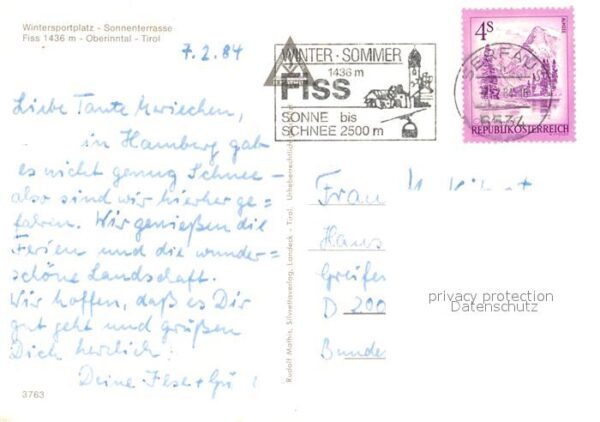 Wintersportplatz - Sonnenterrasse
Fiss 1436 m - Oberinntal - Tirol
7.2.84
Liebe Tante Mariechen,
in Hamburg gab
es nicht genug Schnee -
also sind wir hierher ge=
fahren. Wir genießen die
Ferien und die wunder=
schöne Landschaft.
Wir hoffen, daß es Dir
gut geht und grüßen
Dich herzlich!
Deine Ilse +
3763
Rudolf Mathis, Silvrettaverlag, Landeck - Tirol. Urheberrechtlich
WINTER · SOMMER
1436 m
FISS
SONNE bis
SCHNEE 2500 m
SERFAUS
6534
4S
REPUBLIK ÖSTERREICH
Frau
Hans
Greifer
D 200
Bunde
privacy protection
Datenschutz